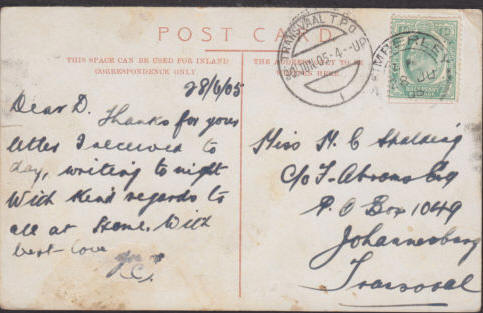 POST CARD
THIS SPACE CAN BE USED FOR INLAND
CORRESPONDENCE ONLY
THE ADDRESS ONLY TO BE
HERE.
TRANSVAAL T.P.O.
JUN 05 4 - UP
1
KIMBERLEY
JU
28/6/05
Dear D. Thanks for your
letter I received to
day, writing to night
With Kind regards to
all at Home. With
best love
yrs
C.
Miss H. C Spalding
C/o I. Abrams Esq
P. O Box 1049
Johannesburg
Transvaal